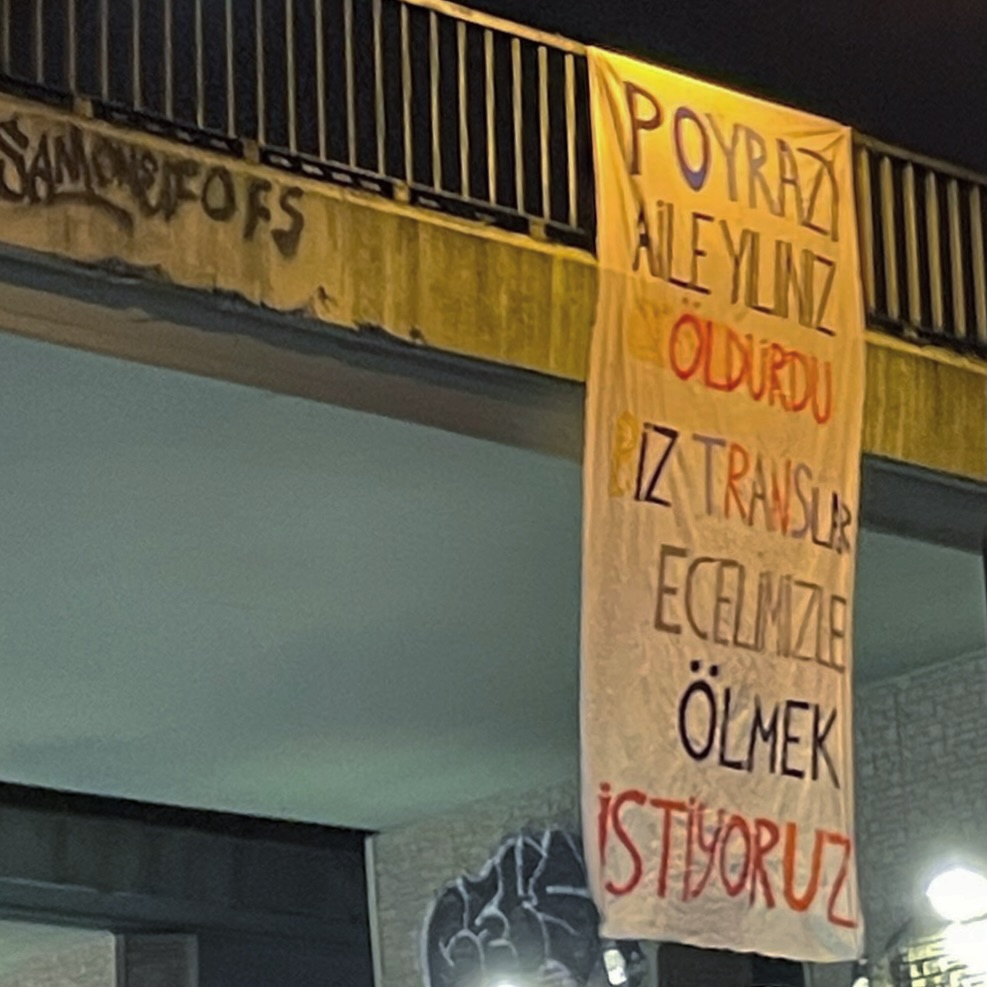 POYRAZI
AİLE YILINIZ
ÖLDÜRDÜ
BİZ TRANSLAR
ECELİMİZLE
ÖLMEK
İSTİYORUZ